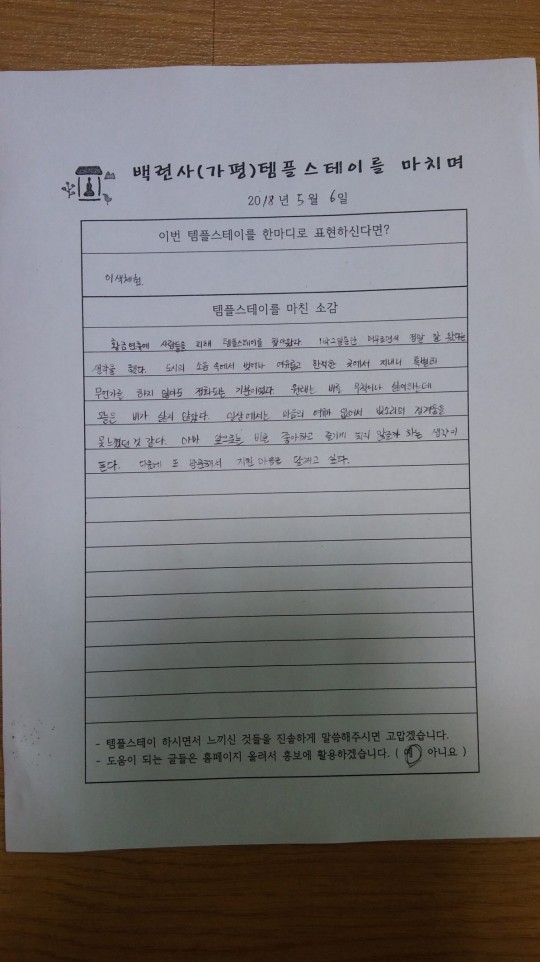 백련사(가평)템플스테이를 마치며
2018년 5월 6일
이번 템플스테이를 한마디로 표현하신다면?
이색체험
템플스테이를 마친 소감
황금연휴에 사람들을 피해 템플스테이를 찾아왔다. 1박2일동안 머무르면서 정말 잘 왔다는
생각을 했다. 도시의 소음 속에서 벗어나 여유롭고 한적한 곳에서 지내니 특별히
무언가를 하지 않아도 정화되는 기분이었다. 원래는 비를 무척이나 싫어하는데
오늘은 비가 싫지 않았다. 일상에서는 마음의 여유가 없어서 빗소리의 정겨움을
못느꼈던 것 같다. 아마 앞으로는 비를 좋아하고 즐기게 되지 않을까 하는 생각이
든다. 다음에 또 방문해서 지친 마음을 달래고 싶다.
- 템플스테이 하시면서 느끼신 것들을 진솔하게 말씀해주시면 고맙겠습니다.
- 도움이 되는 글들은 홈페이지 올려서 홍보에 활용하겠습니다. ( 예 아니요 )